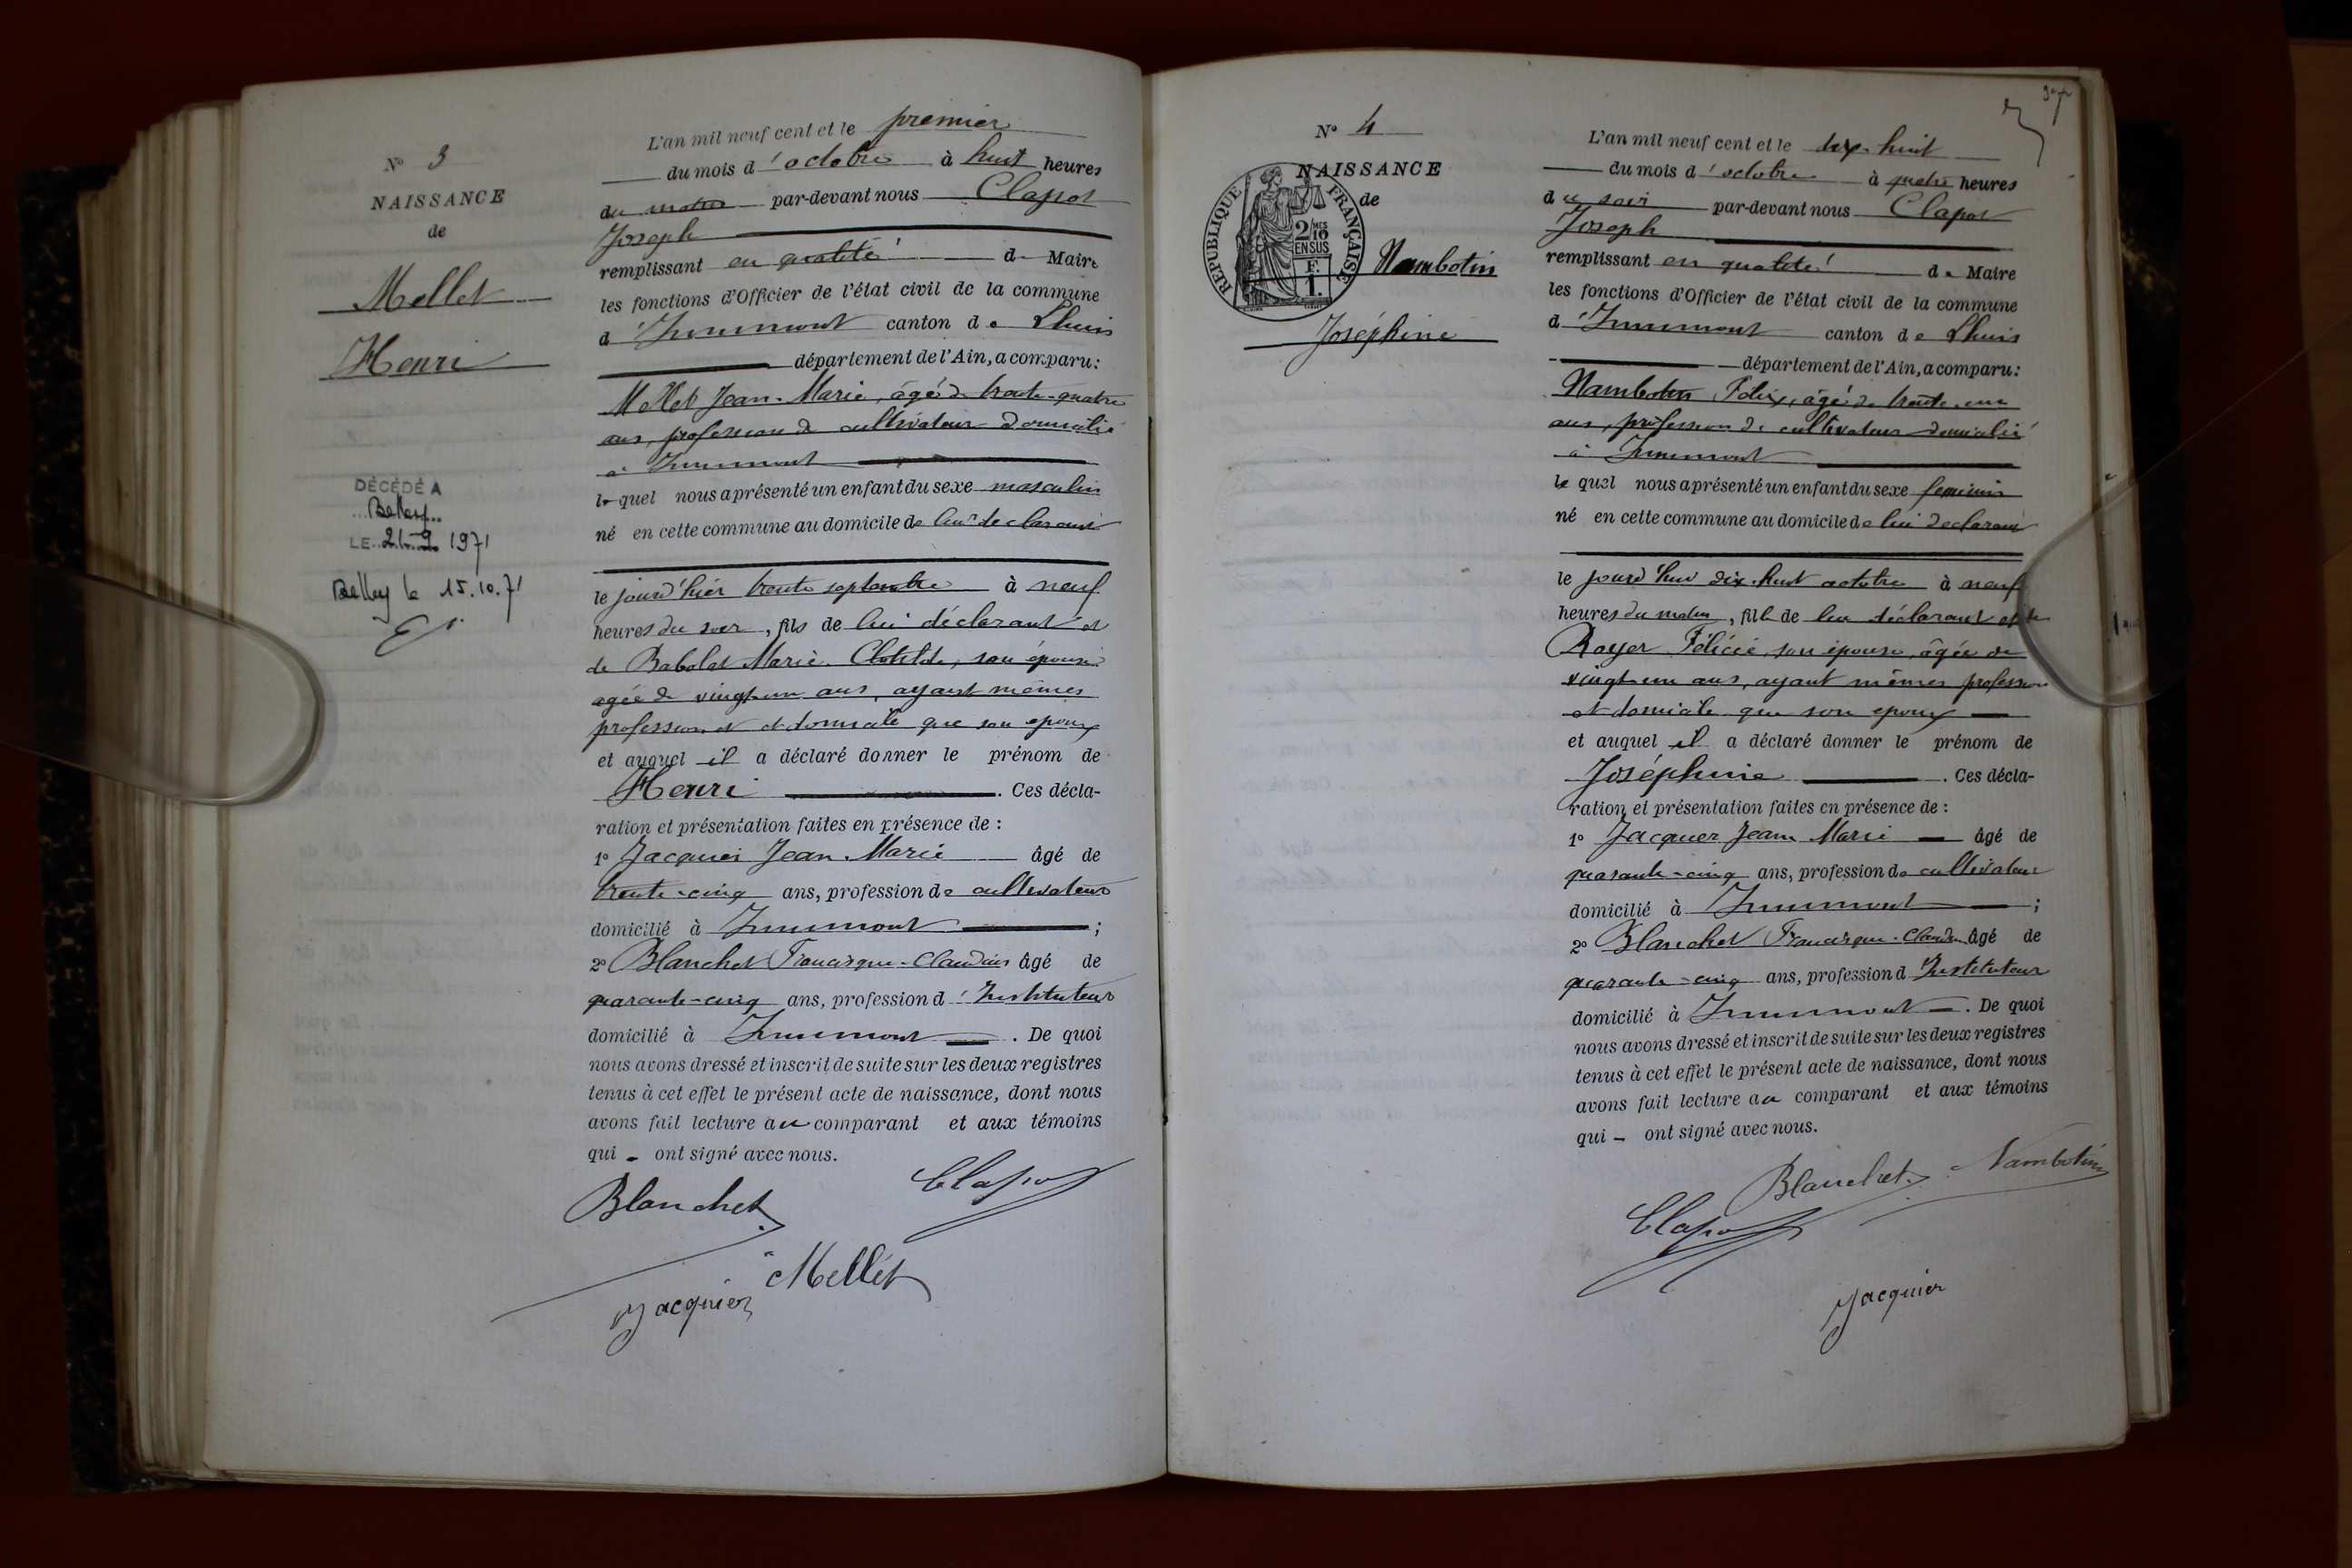 N° 3
NAISSANCE
de
Mellet
Henri
DÉCÉDÉ A
Belley
LE 21-9 1971
Belley le 15.10.71
L'an mil neuf cent et le premier
du mois d'octobre à huit heures
du matin par-devant nous Clapot
Joseph
remplissant en qualité de Maire
les fonctions d'Officier de l'état civil de la commune
d'Innimont canton de Lhuis
département de l'Ain, a comparu:
Mellet Jean-Marie, âgé de trente-quatre
ans, profession de cultivateur domicilié
à Innimont
lequel nous a présenté un enfant du sexe masculin
né en cette commune au domicile de lui déclarant
le jourd'hier trente septembre à neuf
heures du soir, fils de lui déclarant et
de Babolat Marie-Clotilde, son épouse
agée de vingt-un ans, ayant mêmes
profession et domicile que son epoux
et auquel il a déclaré donner le prénom de
Henri. Ces décla-
ration et présentation faites en présence de :
1° Jacquier Jean-Marie âgé de
trente-cinq ans, profession de cultivateur
domicilié à Innimont ;
2° Blanchet Francisque-Claudius âgé de
quarante-cinq ans, profession d'Instituteur
domicilié à Innimont. De quoi
nous avons dressé et inscrit de suite sur les deux registres
tenus à cet effet le présent acte de naissance, dont nous
avons fait lecture au comparant et aux témoins
qui - ont signé avec nous.
Blanchet Clapot
Mellet
Jacquier
N° 4
NAISSANCE
de
RÉPUBLIQUE FRANÇAISE
2/10 MES
EN SUS
F.
1.
Nambotin
Joséphine
37
L'an mil neuf cent et le dix-huit
du mois d'octobre à quatre heures
du soir par-devant nous Clapot
Joseph
remplissant en qualité de Maire
les fonctions d'Officier de l'état civil de la commune
d'Innimont canton de Lhuis
département de l'Ain, a comparu:
Nambotin Félix, âgé de trente-un
ans, profession de cultivateur domicilié
à Innimont
lequel nous a présenté un enfant du sexe feminin
né en cette commune au domicile de lui déclarant
le jourd'hui dix-huit octobre à neuf
heures du matin, fille de lui déclarant et de
Royer Félicie, son épouse, âgée de
vingt-un ans, ayant mêmes profession
et domicile que son epoux
et auquel il a déclaré donner le prénom de
Joséphine. Ces décla-
ration et présentation faites en présence de :
1° Jacquier Jean Marie âgé de
quarante-cinq ans, profession de cultivateur
domicilié à Innimont ;
2° Blanchet Francisque-Claudius âgé de
quarante-cinq ans, profession d'Instituteur
domicilié à Innimont. De quoi
nous avons dressé et inscrit de suite sur les deux registres
tenus à cet effet le présent acte de naissance, dont nous
avons fait lecture au comparant et aux témoins
qui - ont signé avec nous.
Blanchet Nambotin
Clapot
Jacquier